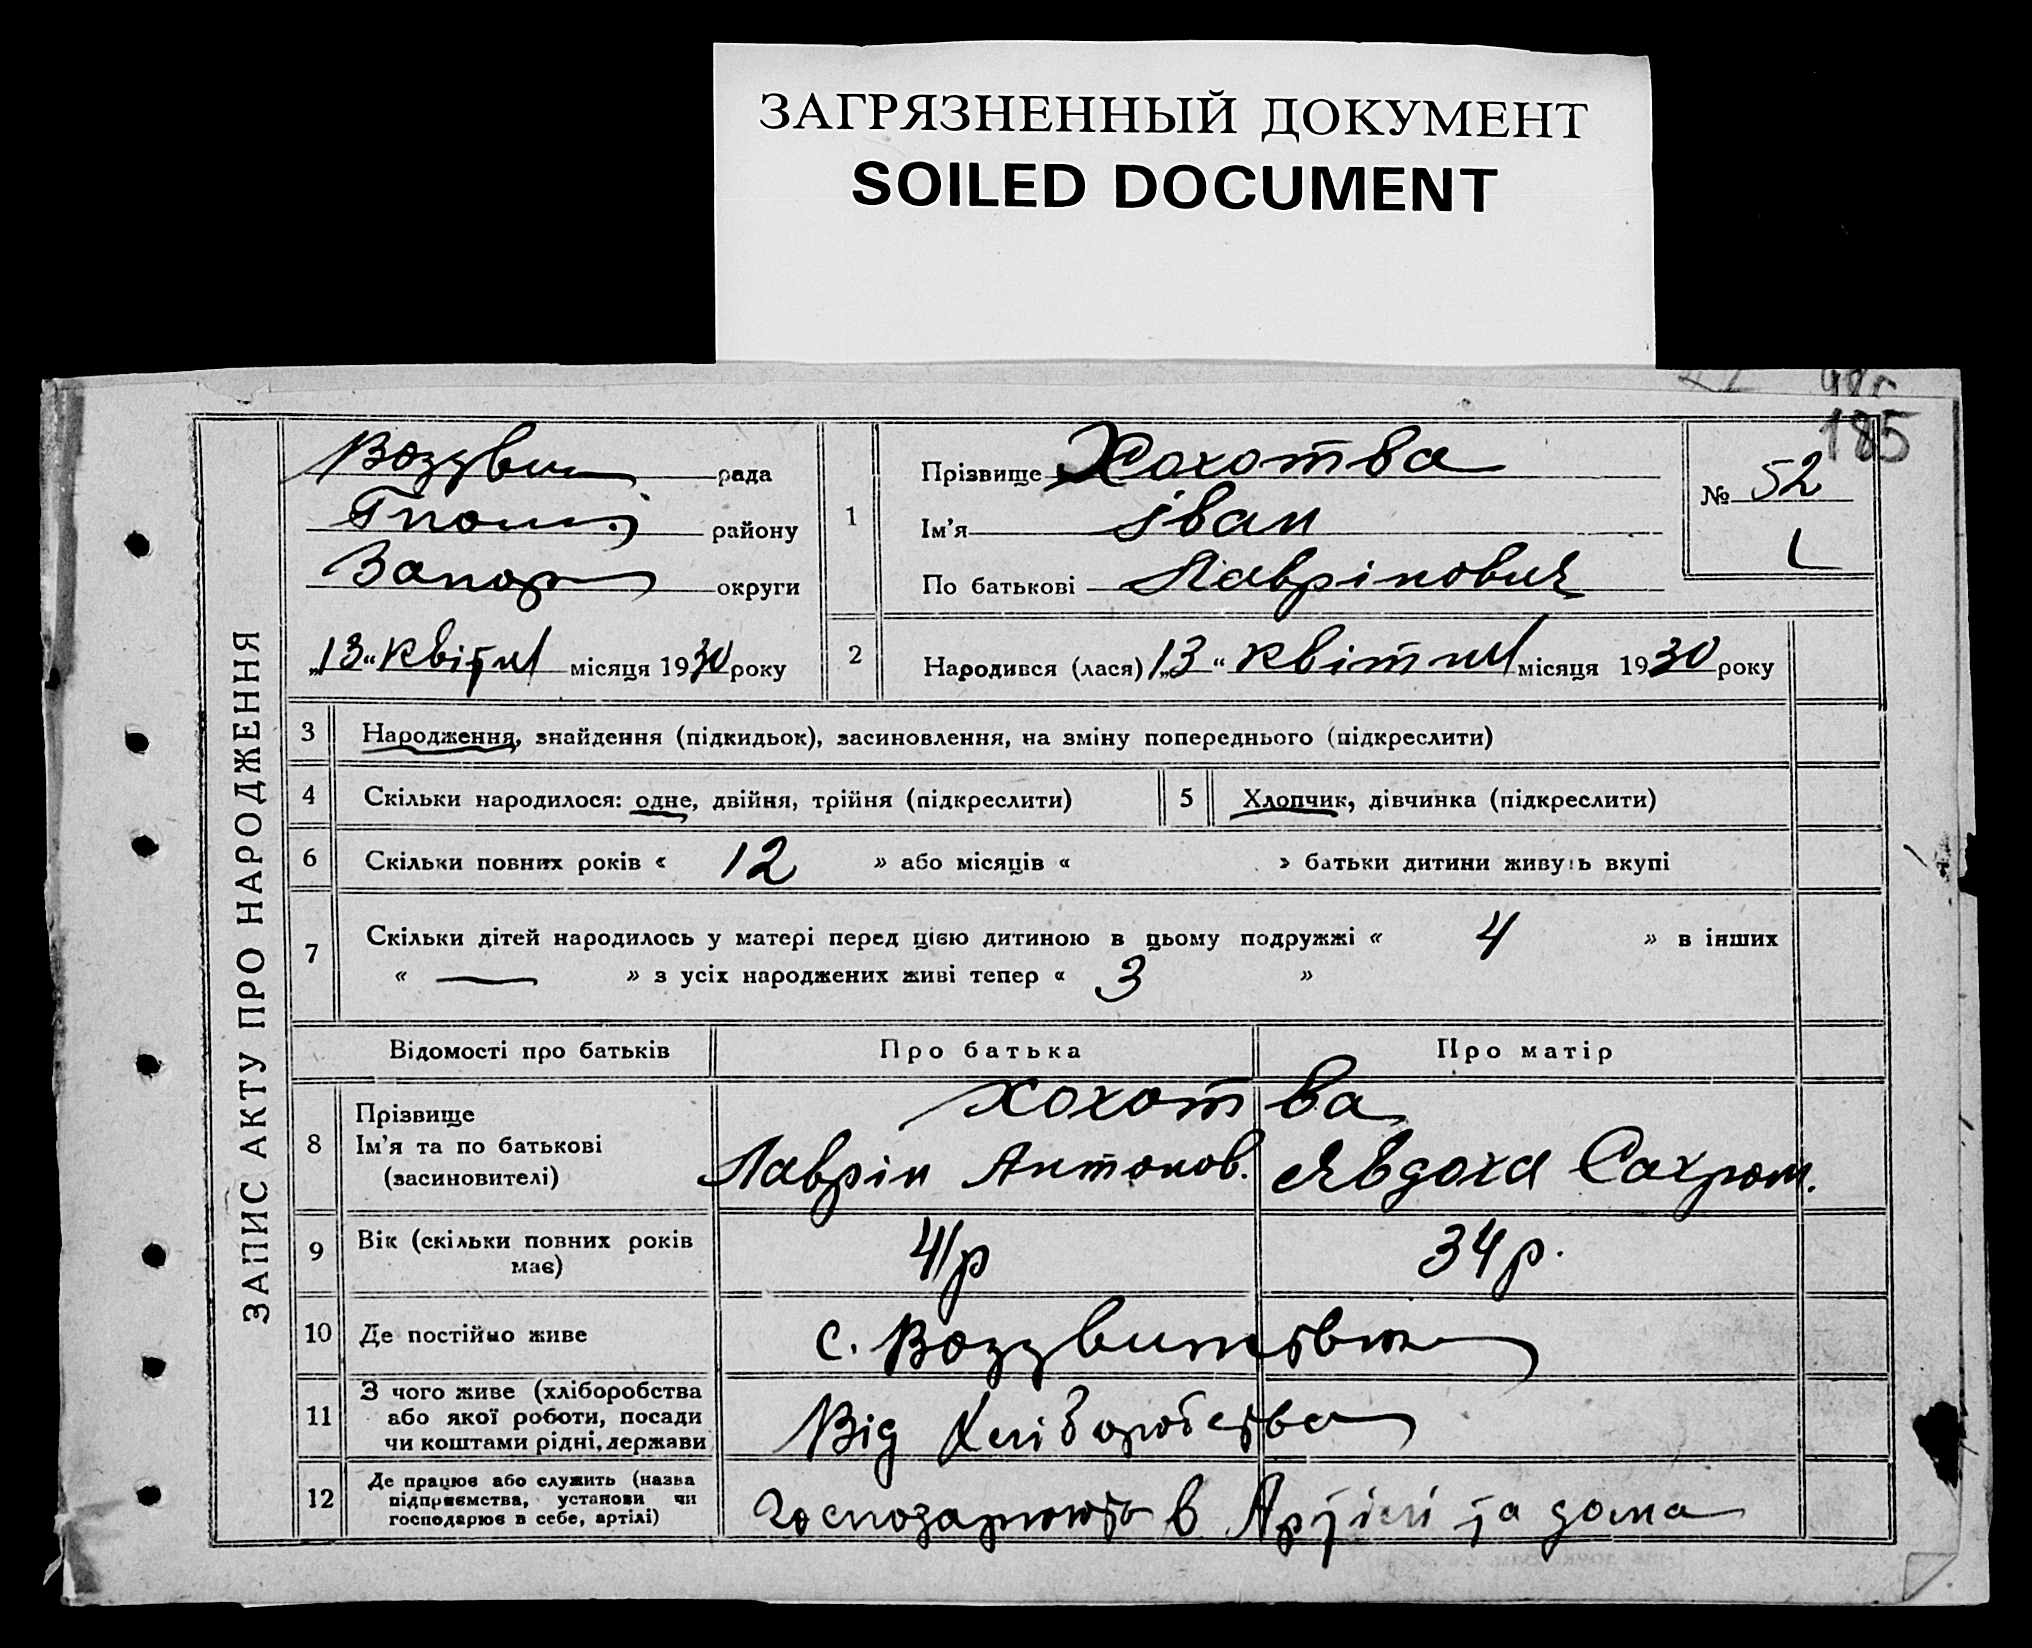 ЗАГРЯЗНЕННЫЙ ДОКУМЕНТ
SOILED DOCUMENT
185
ЗАПИС АКТУ ПРО НАРОДЖЕННЯ
Воздвиж рада
району
Запор округи
„13“ квітня місяця 1930 року
1 Прізвище Хохотва
Ім’я іван
По батькові Лаврінович
№ 52
2 Народився (лася) „13“ квітня місяця 1930 року
3 Народження, знайдення (підкидьок), засиновлення, на зміну попереднього (підкреслити)
4 Скільки народилося: одне, двійня, трійня (підкреслити)
5 Хлопчик, дівчинка (підкреслити)
6 Скільки повних років « 12 » або місяців « » батьки дитини живуть вкупі
7 Скільки дітей народилось у матері перед цією дитиною в цьому подружжі « 4 » в інших
« — » з усіх народжених живі тепер « 3 »
Відомості про батьків Про батька Про матір
8 Прізвище
Ім’я та по батькові
(засиновителі)
Хохотва
Лаврін Антонов. Явдоха Сахрон.
9 Вік (скільки повних років
має)
41р 34р.
10 Де постійно живе с. Воздвижівка
11 З чого живе (хліборобства
або якої роботи, посади
чи коштами рідні, держави
Від Хліборобства
12 Де працює або служить (назва
підприємства, установи чи
господарює в себе, артілі)
господарюють в Артілі та дома